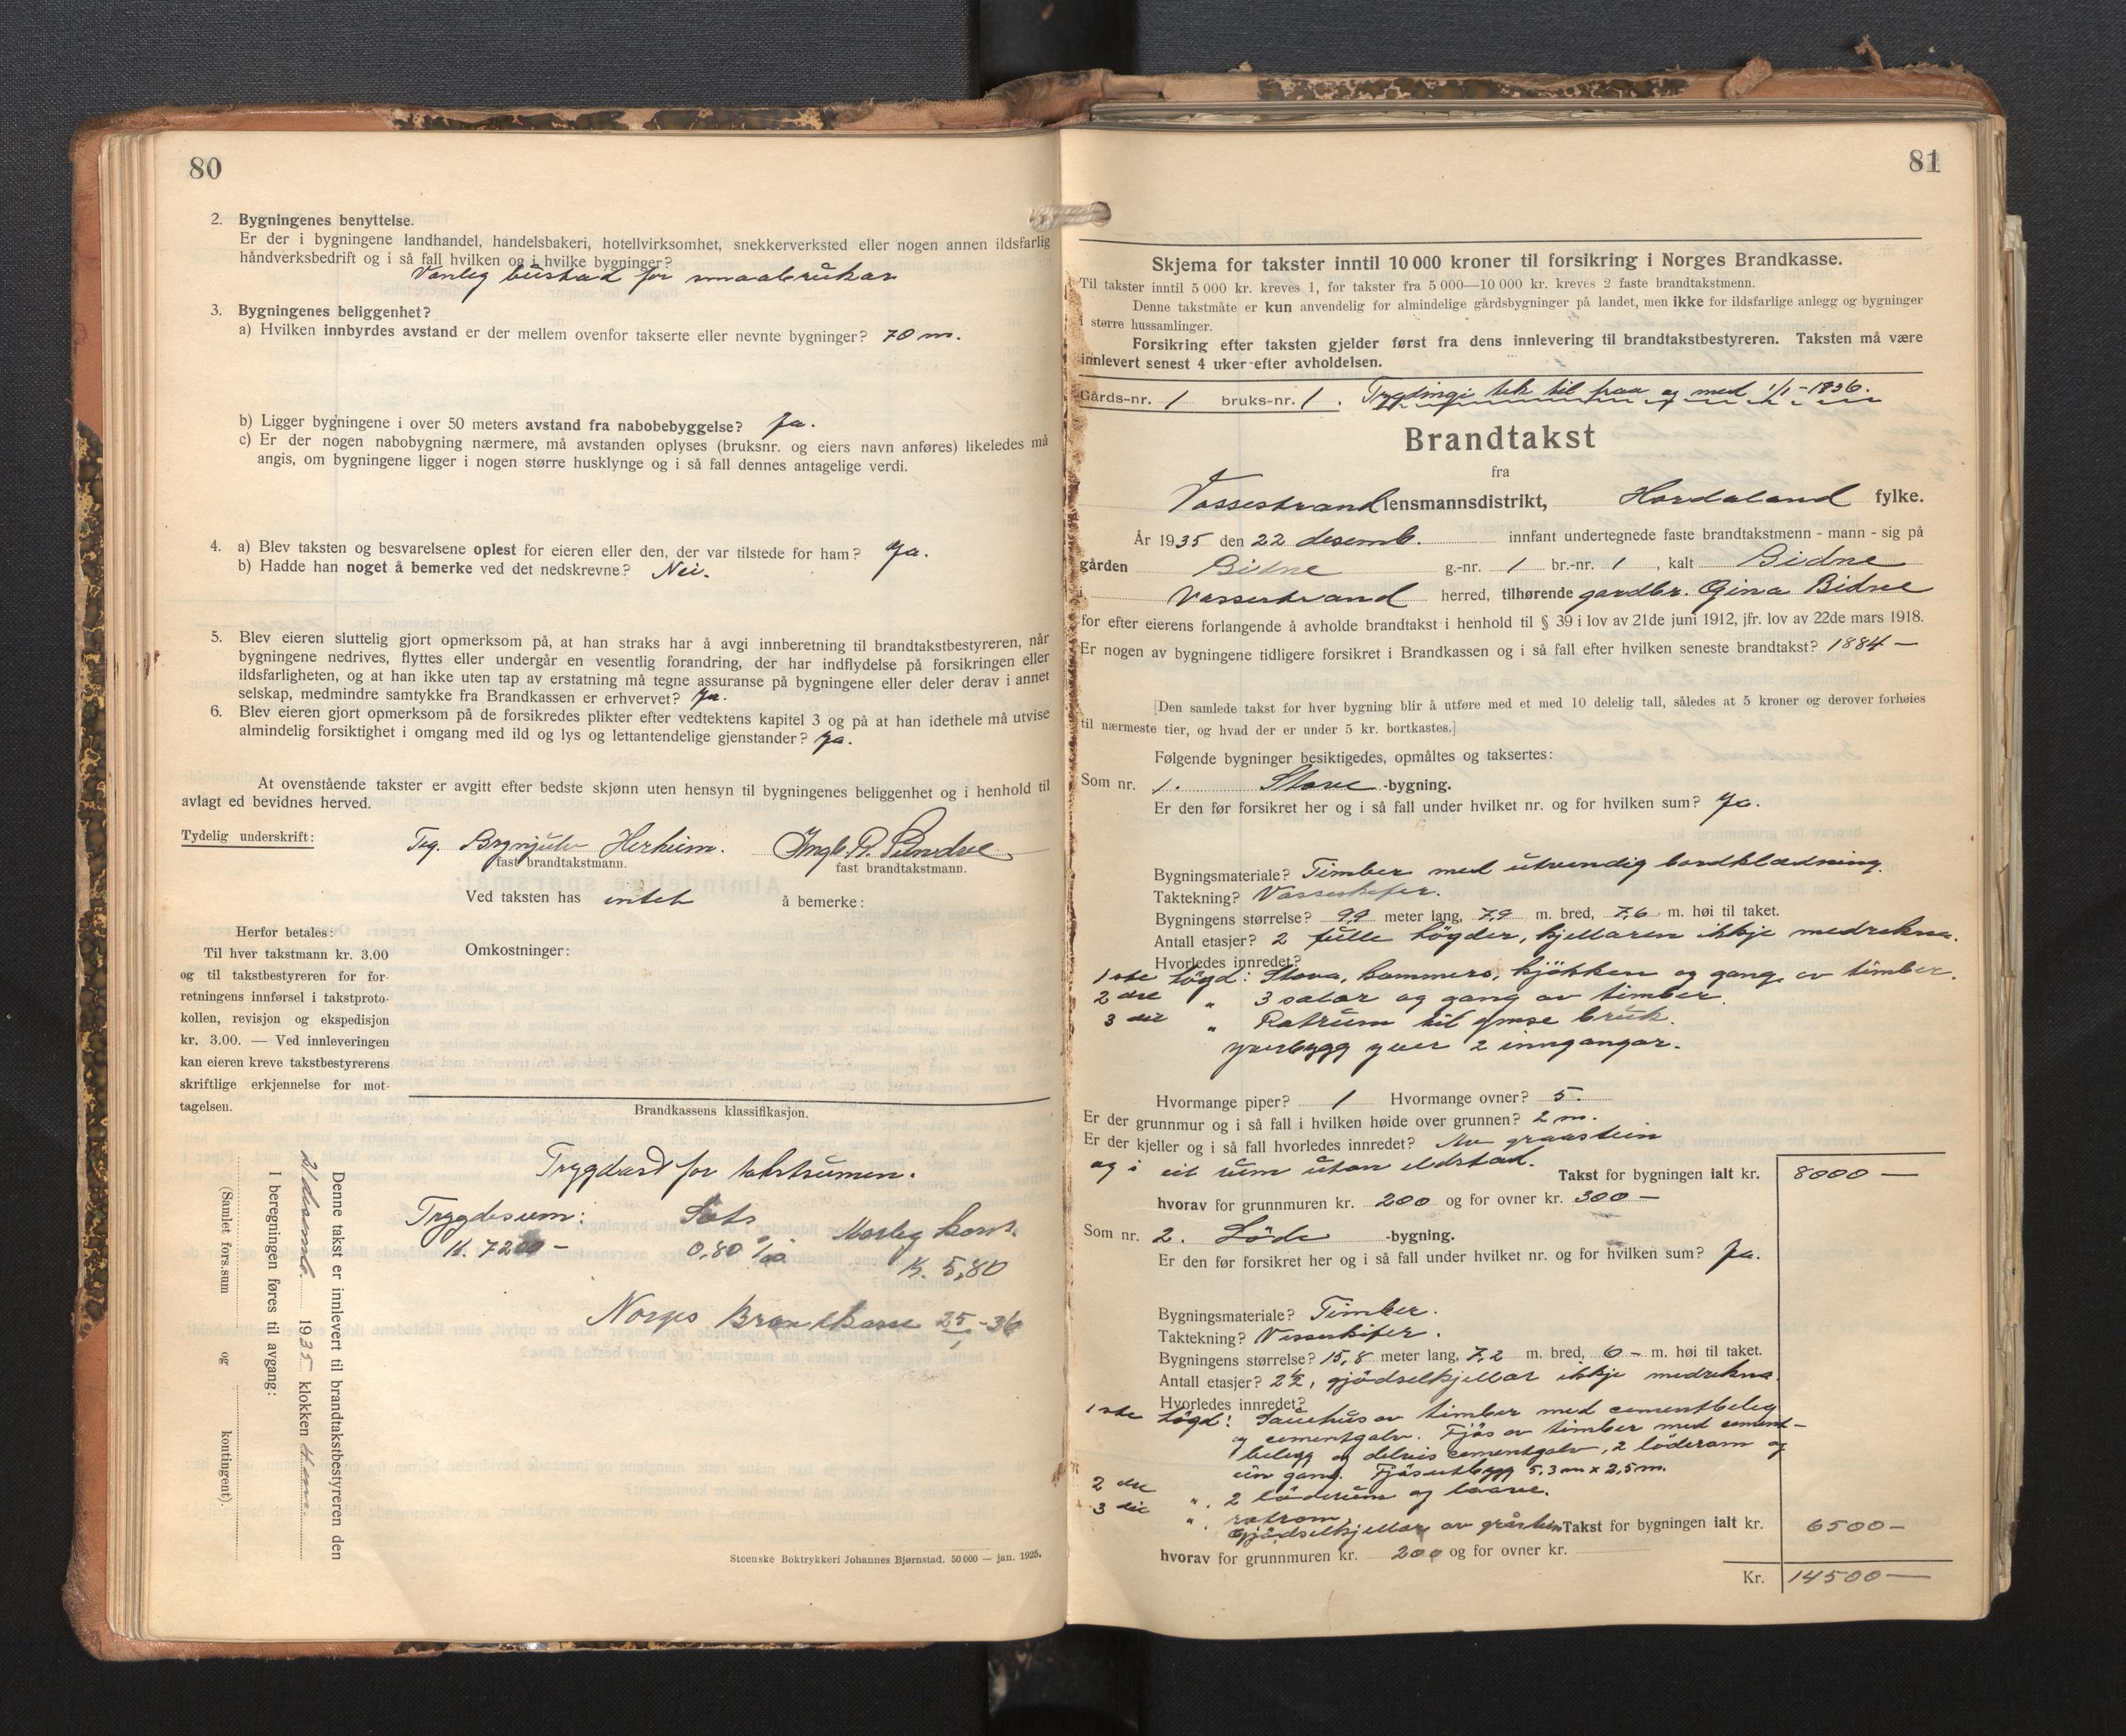 80
2. Bygningenes benyttelse.
Er der i bygningene landhandel, handelsbakeri, hotellvirksomhet, snekkerverksted eller nogen annen ildsfarlig
håndverksbedrift og i så fall hvilken og i hvilke bygninger?
Vanleg bustad for smaabrukar
3. Bygningenes beliggenhet?
a) Hvilken innbyrdes avstand er der mellem ovenfor takserte eller nevnte bygninger? 70 m.
b) Ligger bygningene i over 50 meters avstand fra nabobebyggelse? Ja.
c) Er der nogen nabobygning nærmere, må avstanden oplyses (bruksnr. og eiers navn anføres) likeledes må
angis, om bygningene ligger i nogen større husklynge og i så fall dennes antagelige verdi.
4. a) Blev taksten og besvarelsene oplest for eieren eller den, der var tilstede for ham? Ja.
b) Hadde han noget å bemerke ved det nedskrevne? Nei.
5. Blev eieren sluttelig gjort opmerksom på, at han straks har å avgi innberetning til brandtakstbestyreren, når
bygningene nedrives, flyttes eller undergår en vesentlig forandring, der har indflydelse på forsikringen eller
ildsfarligheten, og at han ikke uten tap av erstatning må tegne assuranse på bygningene eller deler derav i annet
selskap, medmindre samtykke fra Brandkassen er erhvervet? Ja.
6. Blev eieren gjort opmerksom på de forsikredes plikter efter vedtektens kapitel 3 og på at han idethele må utvise
almindelig forsiktighet i omgang med ild og lys og lettantendelige gjenstander? Ja.
At ovenstående takster er avgitt efter bedste skjønn uten hensyn til bygningenes beliggenhet og i henhold til
avlagt ed bevidnes herved.
Tydelig underskrift: Brynjulv Herheim. Ingb. R. Sundve
fast brandtakstmann. fast brandtakstmann.
Ved taksten has intet å bemerke:
Herfor betales:
Til hver takstmann kr. 3.00
og til takstbestyreren for for-
retningens innførsel i takstproto-
kollen, revisjon og ekspedisjon
kr. 3.00. — Ved innleveringen
kan eieren kreve takstbestyrerens
skriftlige erkjennelse for mot-
tagelsen.
Omkostninger:
Brandkassens klassifikasjon.
Trygdast for takstsumen.
Trygdesum: Sats Aarleg kont.
K. 7200 - 0,80 ‰ K. 5,80
Norges Brandkasse 25/1-36
Denne takst er innlevert til brandtakstbestyreren den
21 desemb. 1935 klokken 4 em.
I beregningen føres til avgang:
(Samlet fors.sum og kontingent).
Steenske Boktrykkeri Johannes Bjørnstad. 50 000 — jan. 1925.
81
Skjema for takster inntil 10 000 kroner til forsikring i Norges Brandkasse.
Til takster inntil 5 000 kr. kreves 1, for takster fra 5 000—10 000 kr. kreves 2 faste brandtakstmenn.
Denne takstmåte er kun anvendelig for almindelige gårdsbygninger på landet, men ikke for ildsfarlige anlegg og bygninger
i større hussamlinger.
Forsikring efter taksten gjelder først fra dens innlevering til brandtakstbestyreren. Taksten må være
innlevert senest 4 uker efter avholdelsen.
Gårds-nr. 1 bruks-nr. 1. Trygdingi tek til fraa og med 1/1-1936.
Brandtakst
fra
Vossestrand lensmannsdistrikt, Hordaland fylke.
År 1935 den 22 desemb. innfant undertegnede faste brandtakstmenn - mann - sig på
gården Bidne g.-nr. 1 br.-nr. 1, kalt Bidne
i Vossestrand herred, tilhørende gardbr. Gina Bidne
for efter eierens forlangende å avholde brandtakst i henhold til § 39 i lov av 21de juni 1912, jfr. lov av 22de mars 1918.
Er nogen av bygningene tidligere forsikret i Brandkassen og i så fall efter hvilken seneste brandtakst? 1884 —
[Den samlede takst for hver bygning blir å utføre med et med 10 delelig tall, således at 5 kroner og derover forhøies
til nærmeste tier, og hvad der er under 5 kr. bortkastes.]
Følgende bygninger besiktigedes, opmåltes og taksertes:
Som nr. 1. Stove -bygning.
Er den før forsikret her og i så fall under hvilket nr. og for hvilken sum? Ja.
Bygningsmateriale? Timber med utvendig bordklædning.
Taktekning? Vosseskifer.
Bygningens størrelse? 9,9 meter lang, 7,9 m. bred, 7,6 m. høi til taket.
Antall etasjer? 2 fulle høgder, kjellaren ikkje medrekna.
Hvorledes innredet?
1ste høgd: Stova, kammers, kjökken og gang av timber.
2dre " 3 salar og gang av timber.
3die " Rotrum til ymse bruk.
yverbygg yver 2 inngangar.
Hvormange piper? 1 Hvormange ovner? 5.
Er der grunnmur og i så fall i hvilken høide over grunnen? 2 m.
Er der kjeller og i så fall hvorledes innredet? Av graastein
og i eit rum utan eldstad. Takst for bygningen ialt kr. 8000 —
hvorav for grunnmuren kr. 200 og for ovner kr. 300 —
Som nr. 2. Löde -bygning.
Er den før forsikret her og i så fall under hvilket nr. og for hvilken sum? Ja.
Bygningsmateriale? Timber.
Taktekning? Vosseskifer.
Bygningens størrelse? 15,8 meter lang, 7,2 m. bred, 6 - m. høi til taket.
Antall etasjer? 2½, gjödselkjellar ikkje medrekna.
Hvorledes innredet?
1ste høgd: Sauehus av timber med cementbeleg
og cementgolv. Fjös av timber med cement-
belegg og delvis cementgolv, 2 löderom og
ein gang. Fjösutbygg 5,3 m x 2,5 m.
2dre ". 2 löderum og laave.
3die ". rotrom,
Gjödselkjellar av gråstein Takst for bygningen ialt kr. 6500 —
hvorav for grunnmuren kr. 200 og for ovner kr.
Kr. 14500 —